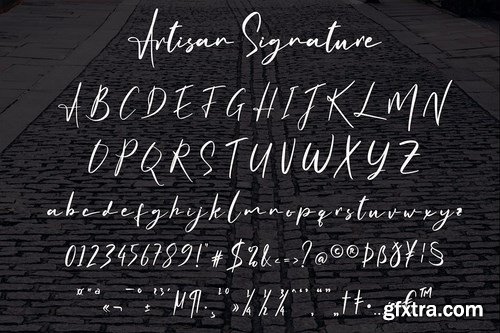 Artisan Signature
ABCDEFGHIJKLMN
OPQRSTUVWXYZ
abcdefghijklmnopqrstuvwxyz
0123456789!"#$%&<=>?@©®ÞßðÝ¡§
¤"ª «¬ ± µ¶·¸ ²º ¼½¾ „†‡•…€™
gfxtra.com